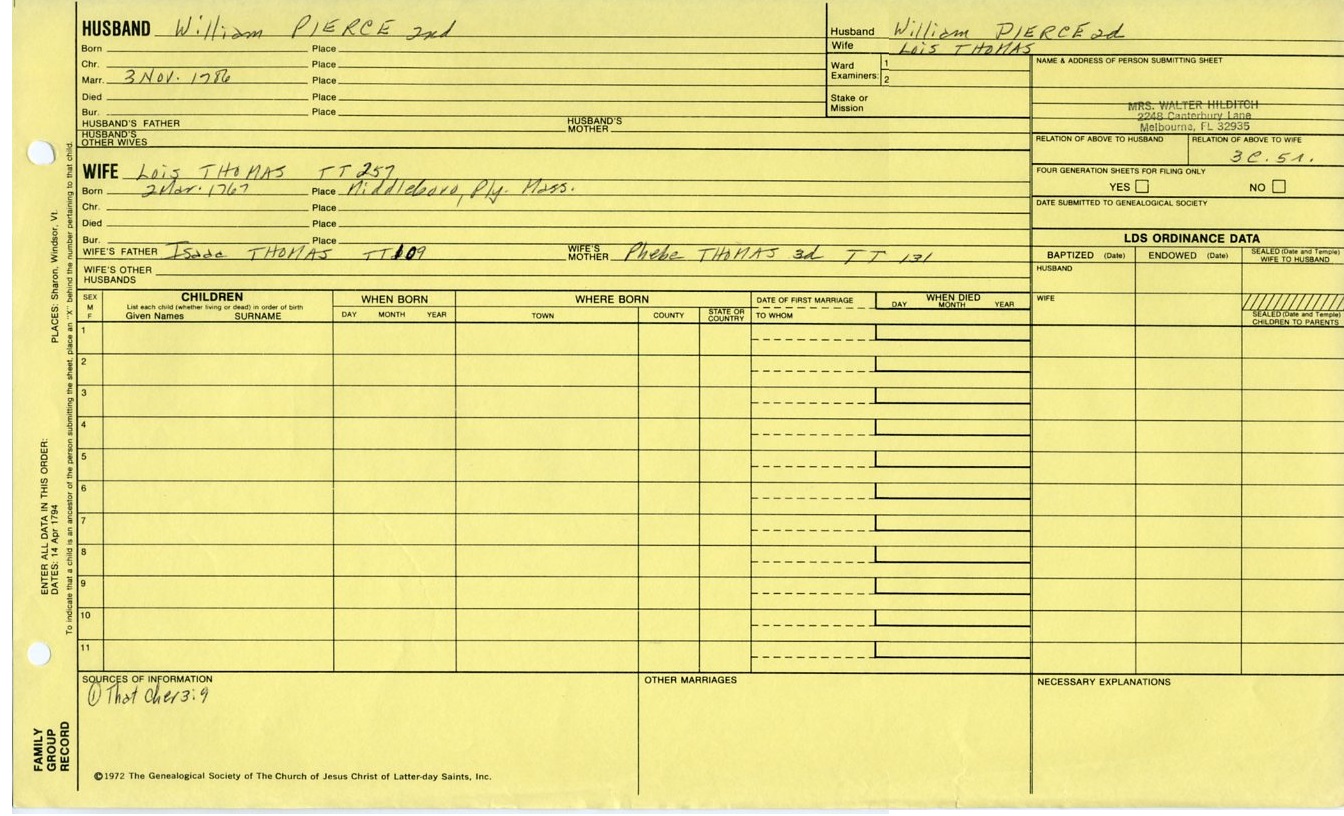 HUSBAND William PIERCE 2nd
Born Place
Chr. Place
Marr. 3 Nov. 1786 Place
Died Place
Bur. Place
HUSBAND'S FATHER HUSBAND'S MOTHER
HUSBAND'S OTHER WIVES
WIFE Lois THOMAS TT 257
Born 2 Mar. 1767 Place Middleboro, Ply. Mass.
Chr. Place
Died Place
Bur. Place
WIFE'S FATHER Isaac THOMAS TT 109 WIFE'S MOTHER Phebe THOMAS 3d TT 131
WIFE'S OTHER HUSBANDS
Husband William PIERCE 2d
Wife Lois THOMAS
Ward Examiners: 1
2
Stake or Mission
NAME & ADDRESS OF PERSON SUBMITTING SHEET
MRS. WALTER HILDITCH
2248 Canterbury Lane
Melbourne, FL 32935
RELATION OF ABOVE TO HUSBAND RELATION OF ABOVE TO WIFE
3C. 5r.
FOUR GENERATION SHEETS FOR FILING ONLY
YES NO
DATE SUBMITTED TO GENEALOGICAL SOCIETY
LDS ORDINANCE DATA
BAPTIZED (Date) ENDOWED (Date) SEALED (Date and Temple) WIFE TO HUSBAND
HUSBAND
WIFE
SEALED (Date and Temple) CHILDREN TO PARENTS
SEX M F
CHILDREN
List each child (whether living or dead) in order of birth
Given Names SURNAME
WHEN BORN
DAY MONTH YEAR
WHERE BORN
TOWN COUNTY STATE OR COUNTRY
DATE OF FIRST MARRIAGE
TO WHOM
WHEN DIED
DAY MONTH YEAR
1
2
3
4
5
6
7
8
9
10
11
SOURCES OF INFORMATION
① Thatcher 3:9
OTHER MARRIAGES
NECESSARY EXPLANATIONS
©1972 The Genealogical Society of The Church of Jesus Christ of Latter-day Saints, Inc.
FAMILY GROUP RECORD
ENTER ALL DATA IN THIS ORDER:
DATES: 14 Apr 1794 PLACES: Sharon, Windsor, Vt.
To indicate that a child is an ancestor of the person submitting the sheet, place an "X" behind the number pertaining to that child.